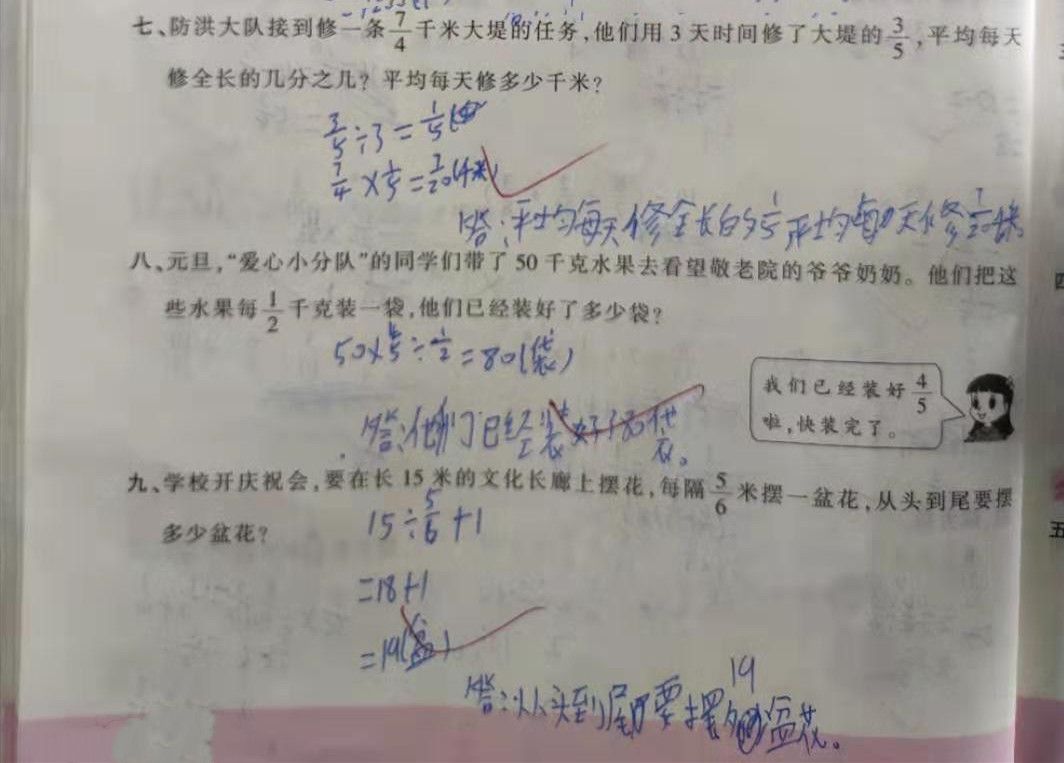 七、防洪大队接到修一条7/4千米大堤的任务,他们用3天时间修了大堤的3/5,平均每天
修全长的几分之几?平均每天修多少千米?
3/5÷3=1/5
7/4×1/5=7/20(千米)
答:平均每天修全长的1/5,平均每天修7/20
八、元旦,“爱心小分队”的同学们带了50千克水果去看望敬老院的爷爷奶奶。他们把这
些水果每1/2千克装一袋,他们已经装好了多少袋?
50×4/5÷1/2=80(袋)
我们已经装好4/5
啦,快装完了。
答:他们已经装好了80袋。
九、学校开庆祝会,要在长15米的文化长廊上摆花,每隔5/6米摆一盆花,从头到尾要摆
多少盆花?
15÷5/6+1
=18+1
=19(盆)
答:从头到尾要摆19盆花。
四
五